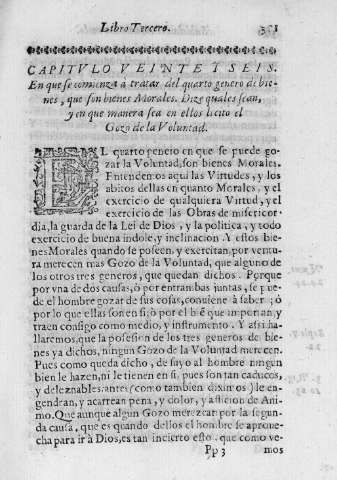 Libro Tercero.
CAPITVLO VEINTE I SEIS.
En que se comienza à tratar del quarto genero de bie-
nes, que son bienes Morales. Dize quales sean,
y en que manera sea en ellos licito el
Gozo de la Voluntad.
EL quarto genero en que se puede go-
zar la Voluntad, son bienes Morales.
Entendemos aqui las Virtudes, y los
abitos dellas en quanto Morales, y el
exercicio de qualquiera Virtud, y el
exercicio de las Obras de misericor-
dia, la guarda de la Lei de Dios, y la politica, y todo
exercicio de buena indole, y inclinacion. Y estos bie-
nes Morales quando se poseen, y exercitan, por ventu-
ra merecen mas Gozo de la Voluntad, que alguno de
los otros tres generos, que quedan dichos. Porque
por vna de dos causas, ò por entrambas juntas, se pue-
de el hombre gozar de sus cosas, conviene à saber; ò
por lo que ellas son en si; ò por el biẽ que importan, y
traen consigo como medio, y instrumento. Y assi ha-
llaremos, que la posesion de los tres generos de bie-
nes ya dichos, ningun Gozo de la Voluntad merecen.
Pues como queda dicho, de suyo al hombre ningun
bien le hazen, ni le tienen en si, pues son tan caducos,
y deleznables: antes (como tambien diximos) le en-
gendran, y acarrean pena, y dolor, y aflicion de Ani-
mo. Que aunque algun Gozo merezcan por la segun-
da causa, que es quando dellos el hombre se aprove-
cha para ir à Dios, es tan incierto esto, que como ve-
Pp 3 mos